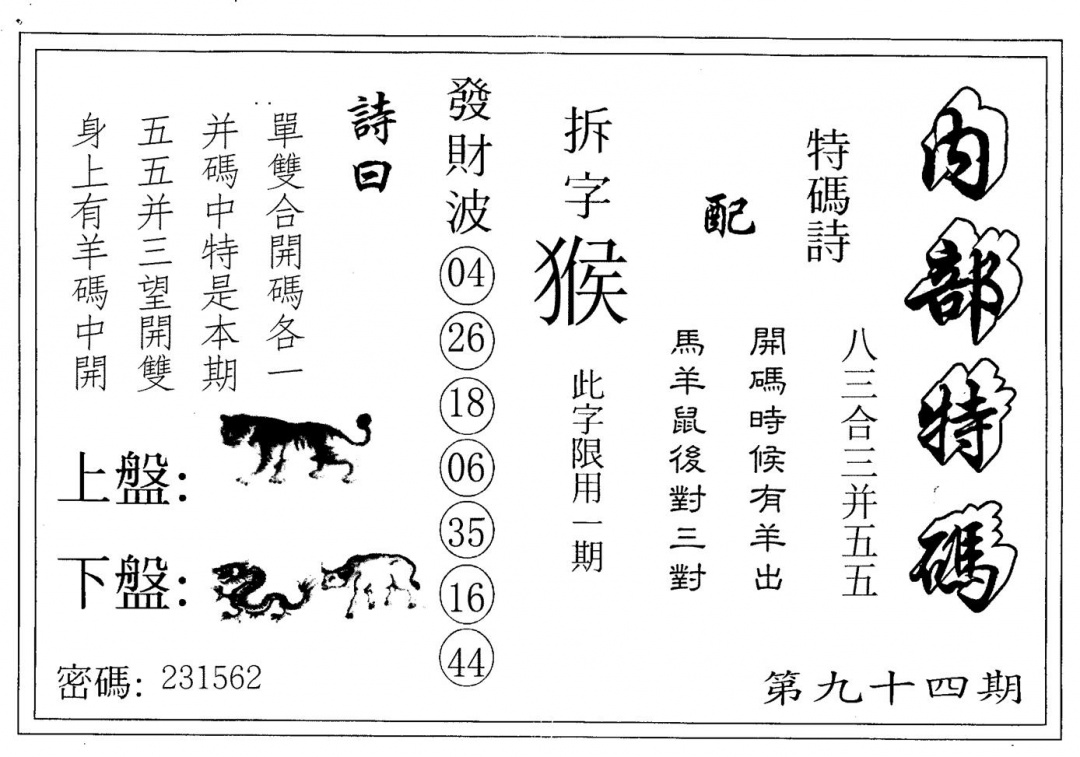 內部特碼
第九十四期
特碼詩
八三合三并五五
配
開碼時候有羊出
馬羊鼠後對三對
拆字
猴
此字限用一期
發財波
04
26
18
06
35
16
44
詩曰
單雙合開碼各一
并碼中特是本期
五五并三望開雙
身上有羊碼中開
上盤:
下盤:
密碼: 231562